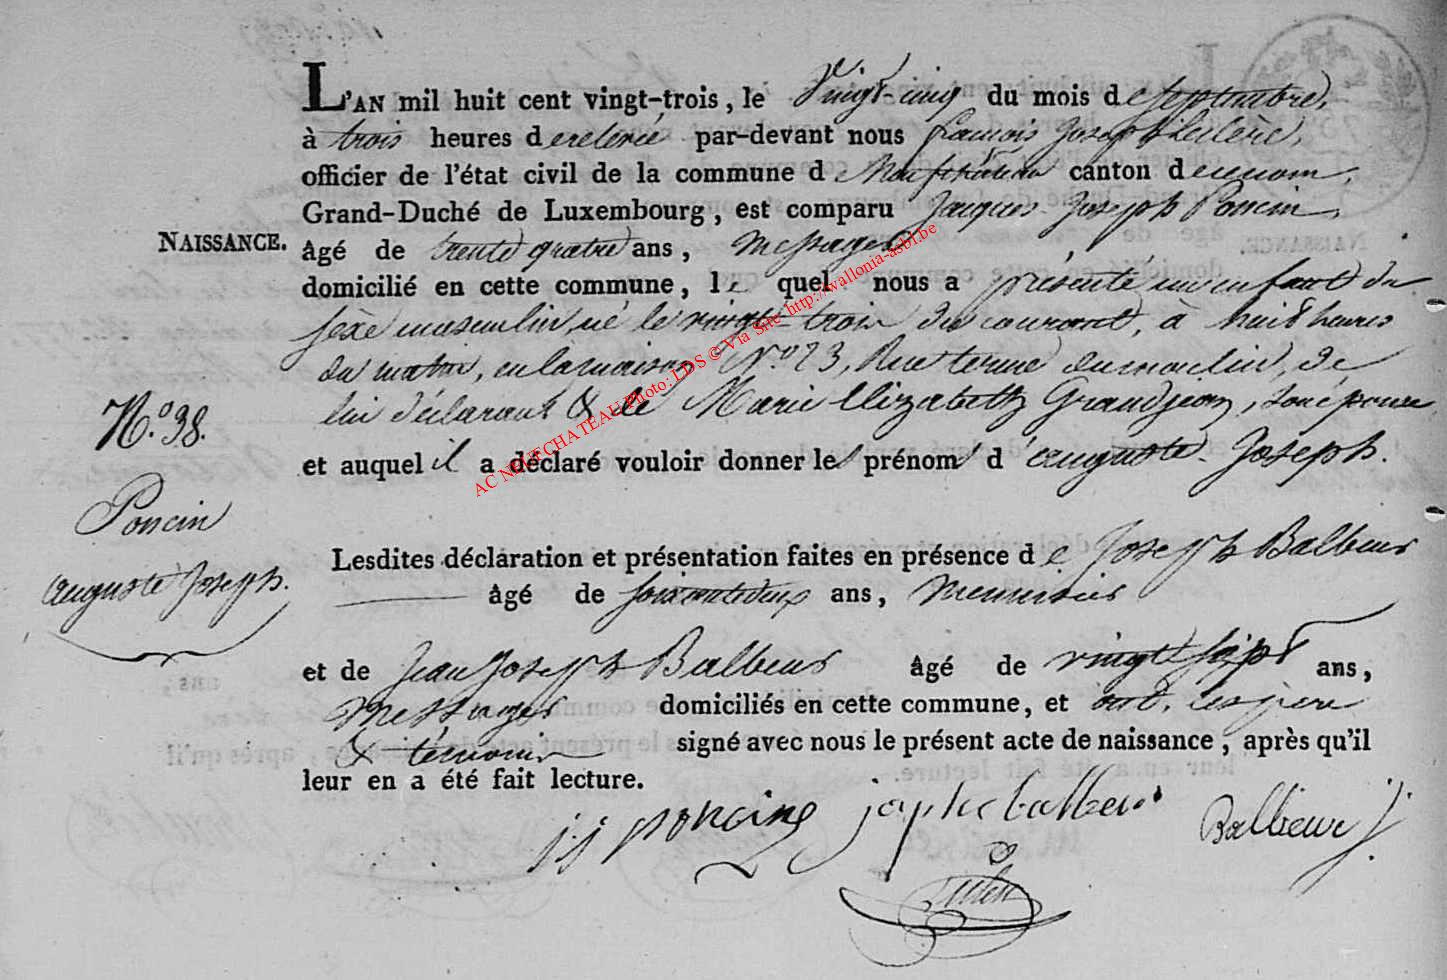 L'AN mil huit cent vingt-trois, le Vingt-cinq du mois de Septembre,
à trois heures de relevée par-devant nous francois Joseph Leclerc,
officier de l'état civil de la commune de Neufchateau canton de ce nom,
Grand-Duché de Luxembourg, est comparu Jacques Joseph Poncin,
NAISSANCE.
âgé de trente quatre ans, Messager
domicilié en cette commune, le quel nous a présenté un enfant du
sexe masculin, né le vingt-trois du courant, à huit heures
du matin, en la maison N.o 23, Rue tenue du moulin, de
lui déclarant & de Marie Elizabeth Grandjean, son épouse
et auquel il a déclaré vouloir donner les prénoms d'auguste Joseph.
N.o 38.
Poncin
auguste Joseph.
Lesdites déclaration et présentation faites en présence de Joseph Balbeur
âgé de soixante deux ans, Menuisier
et de Jean Joseph Balbeur âgé de vingt sept ans,
Messager domiciliés en cette commune, et ont, les père
& témoins signé avec nous le présent acte de naissance, après qu'il
leur en a été fait lecture.
j j poncing joseph balbeur Balbeur j j
AC NEUFCHATEAU Photo: LDS © Via Site http://wallonia-asbl.be